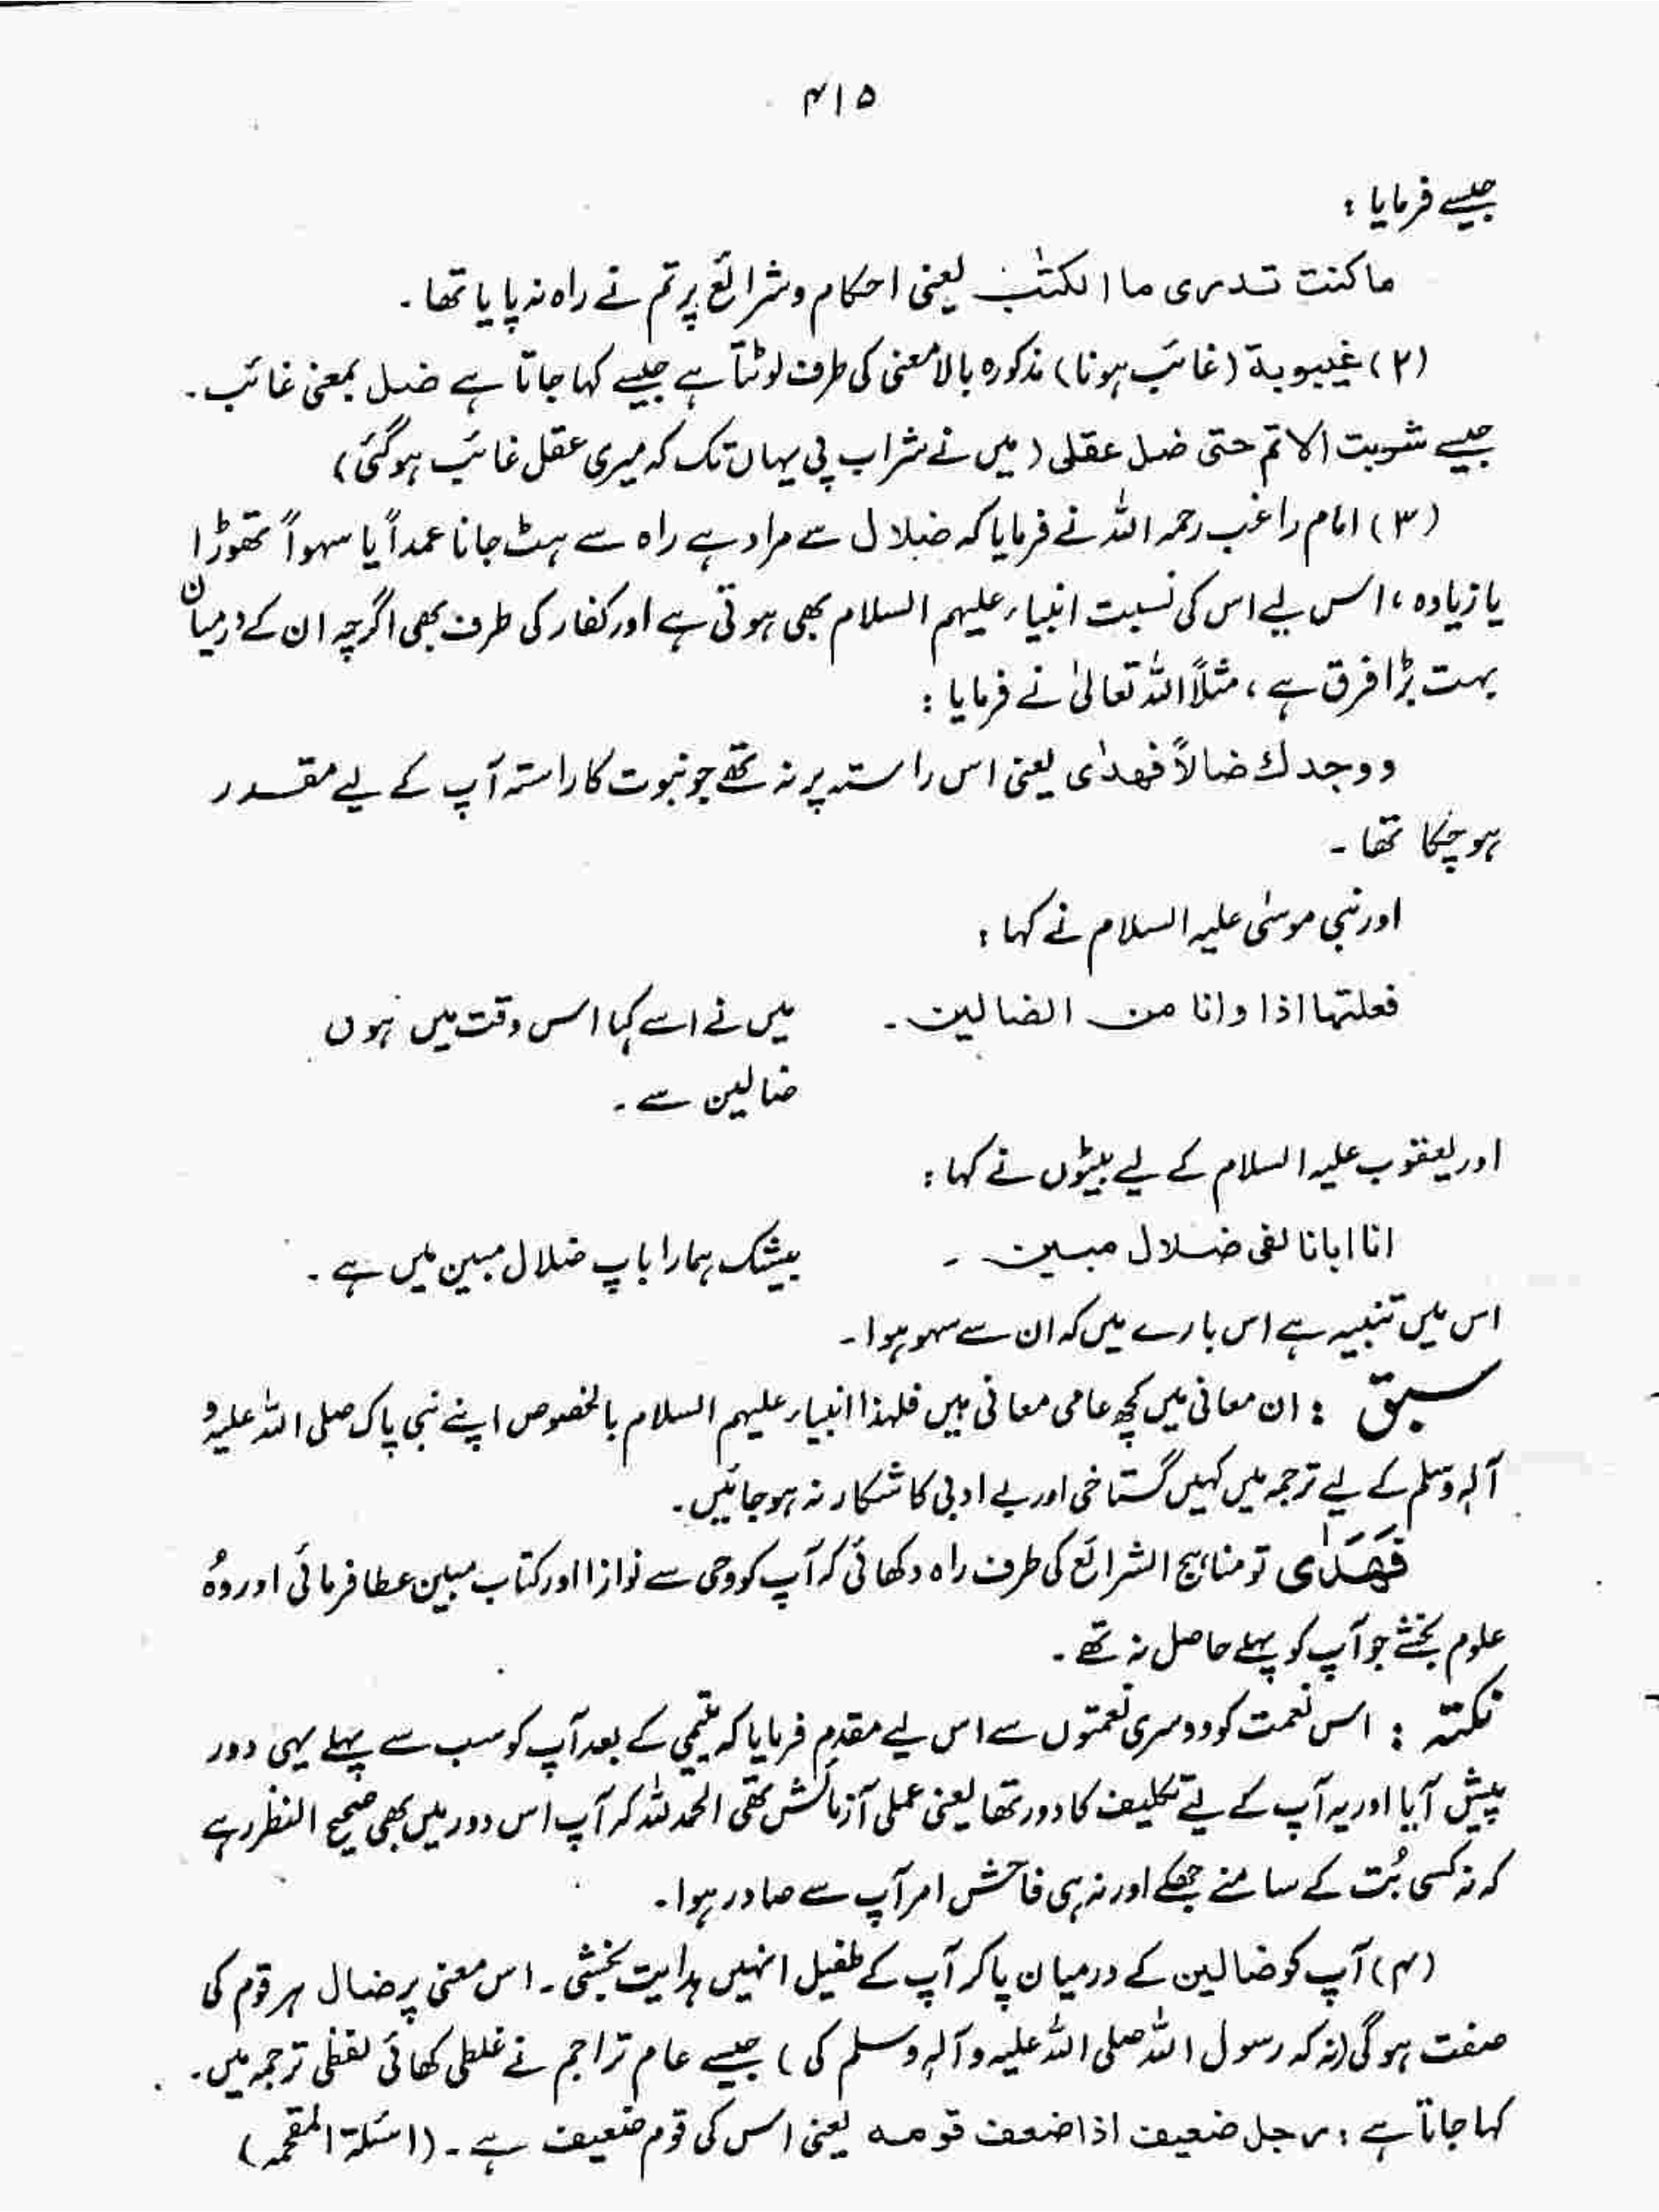 ۴۱۵
جیسے فرمایا :
ماکنت تدری ما الکتٰب یعنی احکام و شرائع پر تم نے راہ نہ پایا تھا۔
(۲) غیبوبة (غائب ہونا) مذکورہ بالا معنی کی طرف لوٹتا ہے جیسے کہا جاتا ہے ضل بمعنی غائب۔
جیسے شربت الاثم حتی ضل عقلی (میں نے شراب پی یہاں تک کہ میری عقل غائب ہوگئی)
(۳) امام راغب رحمہ اللہ نے فرمایا کہ ضلال سے مراد ہے راہ سے ہٹ جانا عمداً یا سہواً تھوڑا
یا زیادہ، اس لیے اس کی نسبت انبیاء علیہم السلام بھی ہوتی ہے اور کفار کی طرف بھی اگرچہ ان کے درمیان
بہت بڑا فرق ہے، مثلاً اللہ تعالیٰ نے فرمایا :
ووجدك ضالاً فهدٰى یعنی اس راستہ پر نہ تھے جو نبوت کا راستہ آپ کے لیے مقدر
ہو چکا تھا۔
اور نبی موسٰی علیہ السلام نے کہا :
فعلتها اذا وانا من الضالین۔ میں نے اسے کہا اس وقت میں ہوں
ضالین سے۔
اور یعقوب علیہ السلام کے لیے بیٹوں نے کہا :
انا ابانا لفی ضلال مبین۔ بیشک ہمارا باپ ضلال مبین میں ہے۔
اس میں تنبیہ ہے اس بارے میں کہ ان سے سہو ہوا۔
سبق : ان معانی میں کچھ عامی معانی ہیں فلہذا انبیاء علیہم السلام بالخصوص اپنے نبی پاک صلی اللہ علیہ و
آلہٖ وسلم کے لیے ترجمہ میں کہیں گستاخی اور بے ادبی کا شکار نہ ہو جائیں۔
فَهَدٰی تو مناہج الشرائع کی طرف راہ دکھائی کہ آپ کو وحی سے نوازا اور کتاب مبین عطا فرمائی اور وہُ
علوم بخشے جو آپ کو پہلے حاصل نہ تھے۔
نکتہ : اس نعمت کو دوسری نعمتوں سے اس لیے مقدم فرمایا کہ یتیمی کے بعد آپ کو سب سے پہلے یہی دور
پیش آیا اور یہ آپ کے لیے تکلیف کا دور تھا یعنی عملی آزمائش تھی الحمدللہ کہ آپ اس دور میں بھی صحیح النظر رہے
کہ نہ کسی بُت کے سامنے جھکے اور نہ ہی فاحش امر آپ سے صادر ہوا۔
(۴) آپ کو ضالین کے درمیان پا کر آپ کے طفیل انہیں ہدایت بخشی۔ اس معنی پر ضال ہر قوم کی
صفت ہوگی (نہ کہ رسول اللہ صلی اللہ علیہ و آلہٖ وسلم کی) جیسے عام تراجم نے غلطی کھائی لفظی ترجمہ میں۔
کہا جاتا ہے : رجل ضعیف اذا ضعف قومه یعنی اس کی قوم ضعیف ہے۔ (اسئلة المقحمہ)